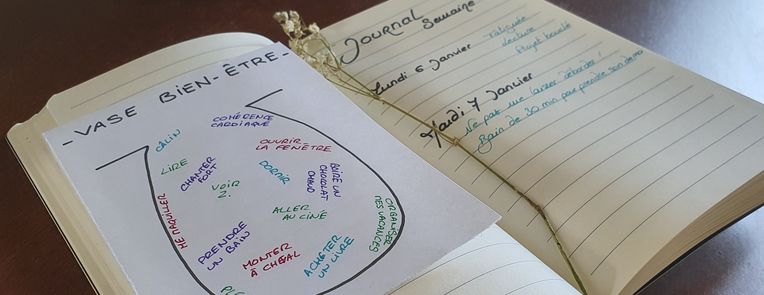 - VASE BIEN-ÊTRE -
CÂLIN
COHÉRENCE
CARDIAQUE
LIRE
CHANTER
FORT
OUVRIR
LA FENÊTRE
VOIR
DORMIR
BOIRE UN
CHOCOLAT
CHAUD
ME MAQUILLER
ALLER
AU CINÉ
ORGANISER
MES VACANCES
PRENDRE
UN BAIN
MONTER
À CHEVAL
ACHETER
UN LIVRE
JOURNAL
Semaine
Lundi 6 Janvier
Fatiguée
Projet bouclé
Mardi 7 Janvier
Ne pas me laisser déborder !
Bain de 30 min pour prendre soin de moi